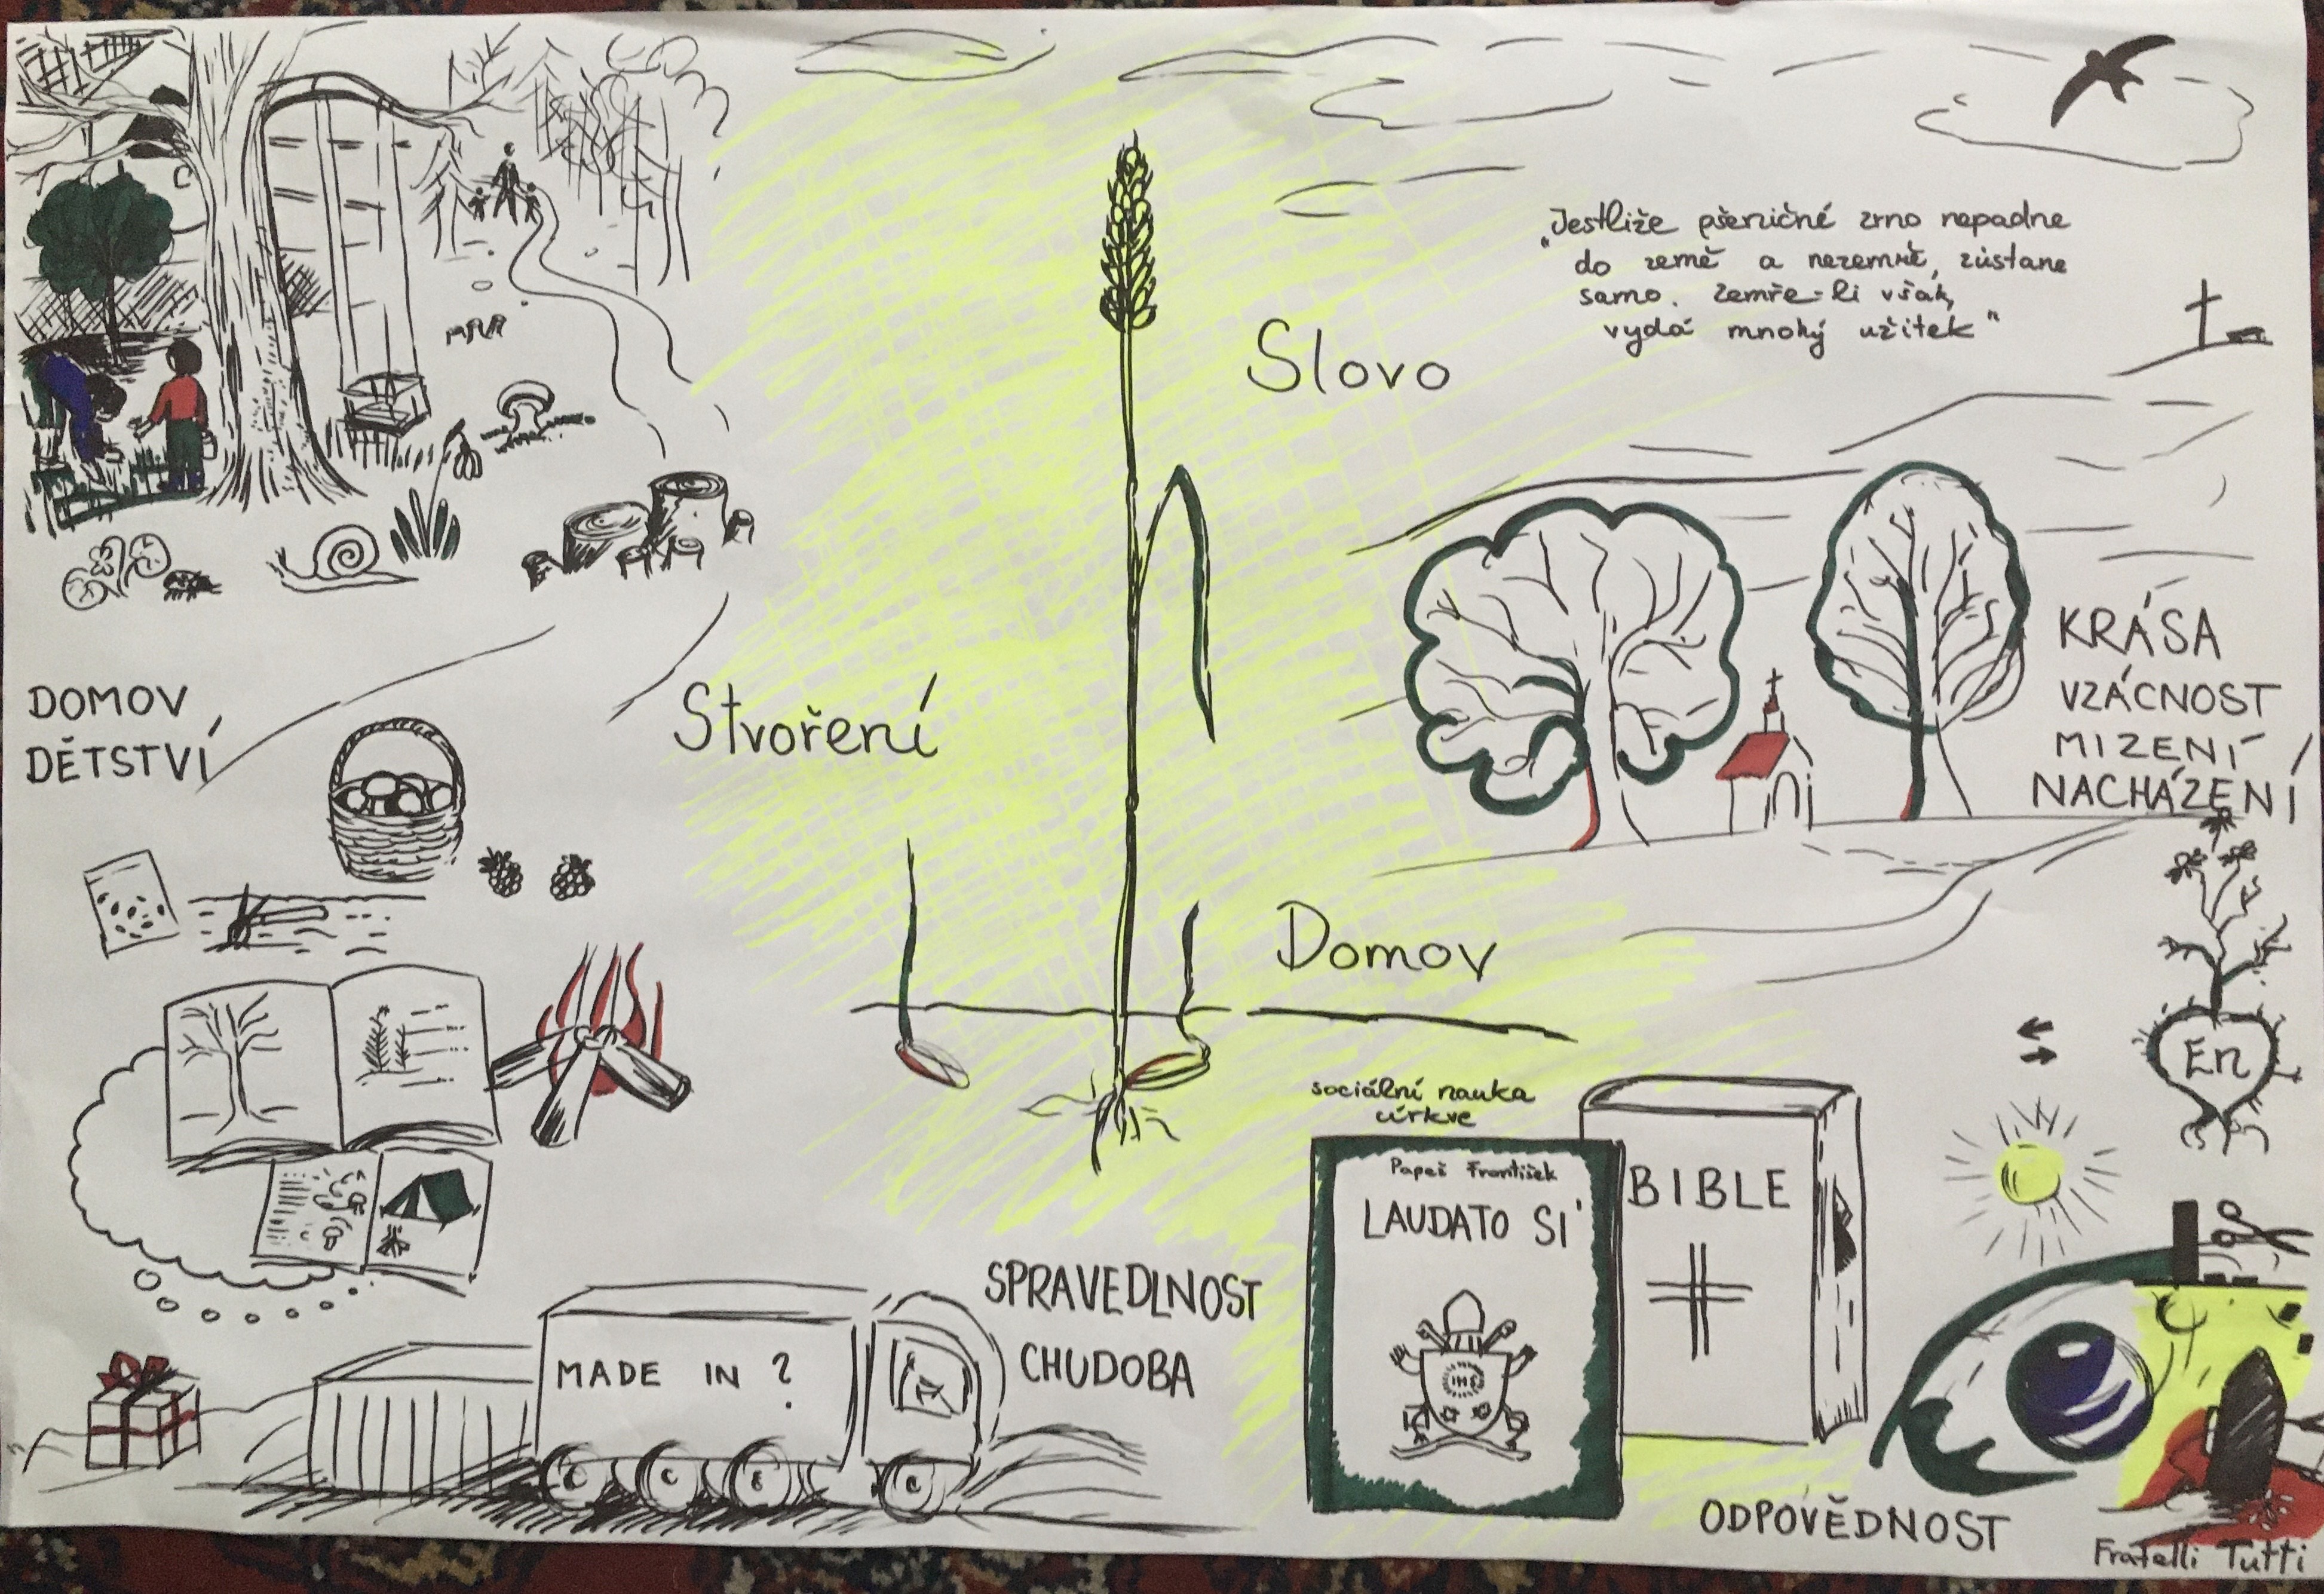 „Jestliže pšeničné zrno nepadne
do země a nezemře, zůstane
samo. Zemře-li však,
vydá mnohý užitek"
Slovo
Stvoření
Domov
DOMOV
DĚTSTVÍ
KRÁSA
VZÁCNOST
MIZENÍ
NACHÁZENÍ
En
sociální nauka
církve
Papež František
LAUDATO SI'
IHS
BIBLE
SPRAVEDLNOST
CHUDOBA
MADE IN ?
ODPOVĚDNOST
Fratelli Tutti